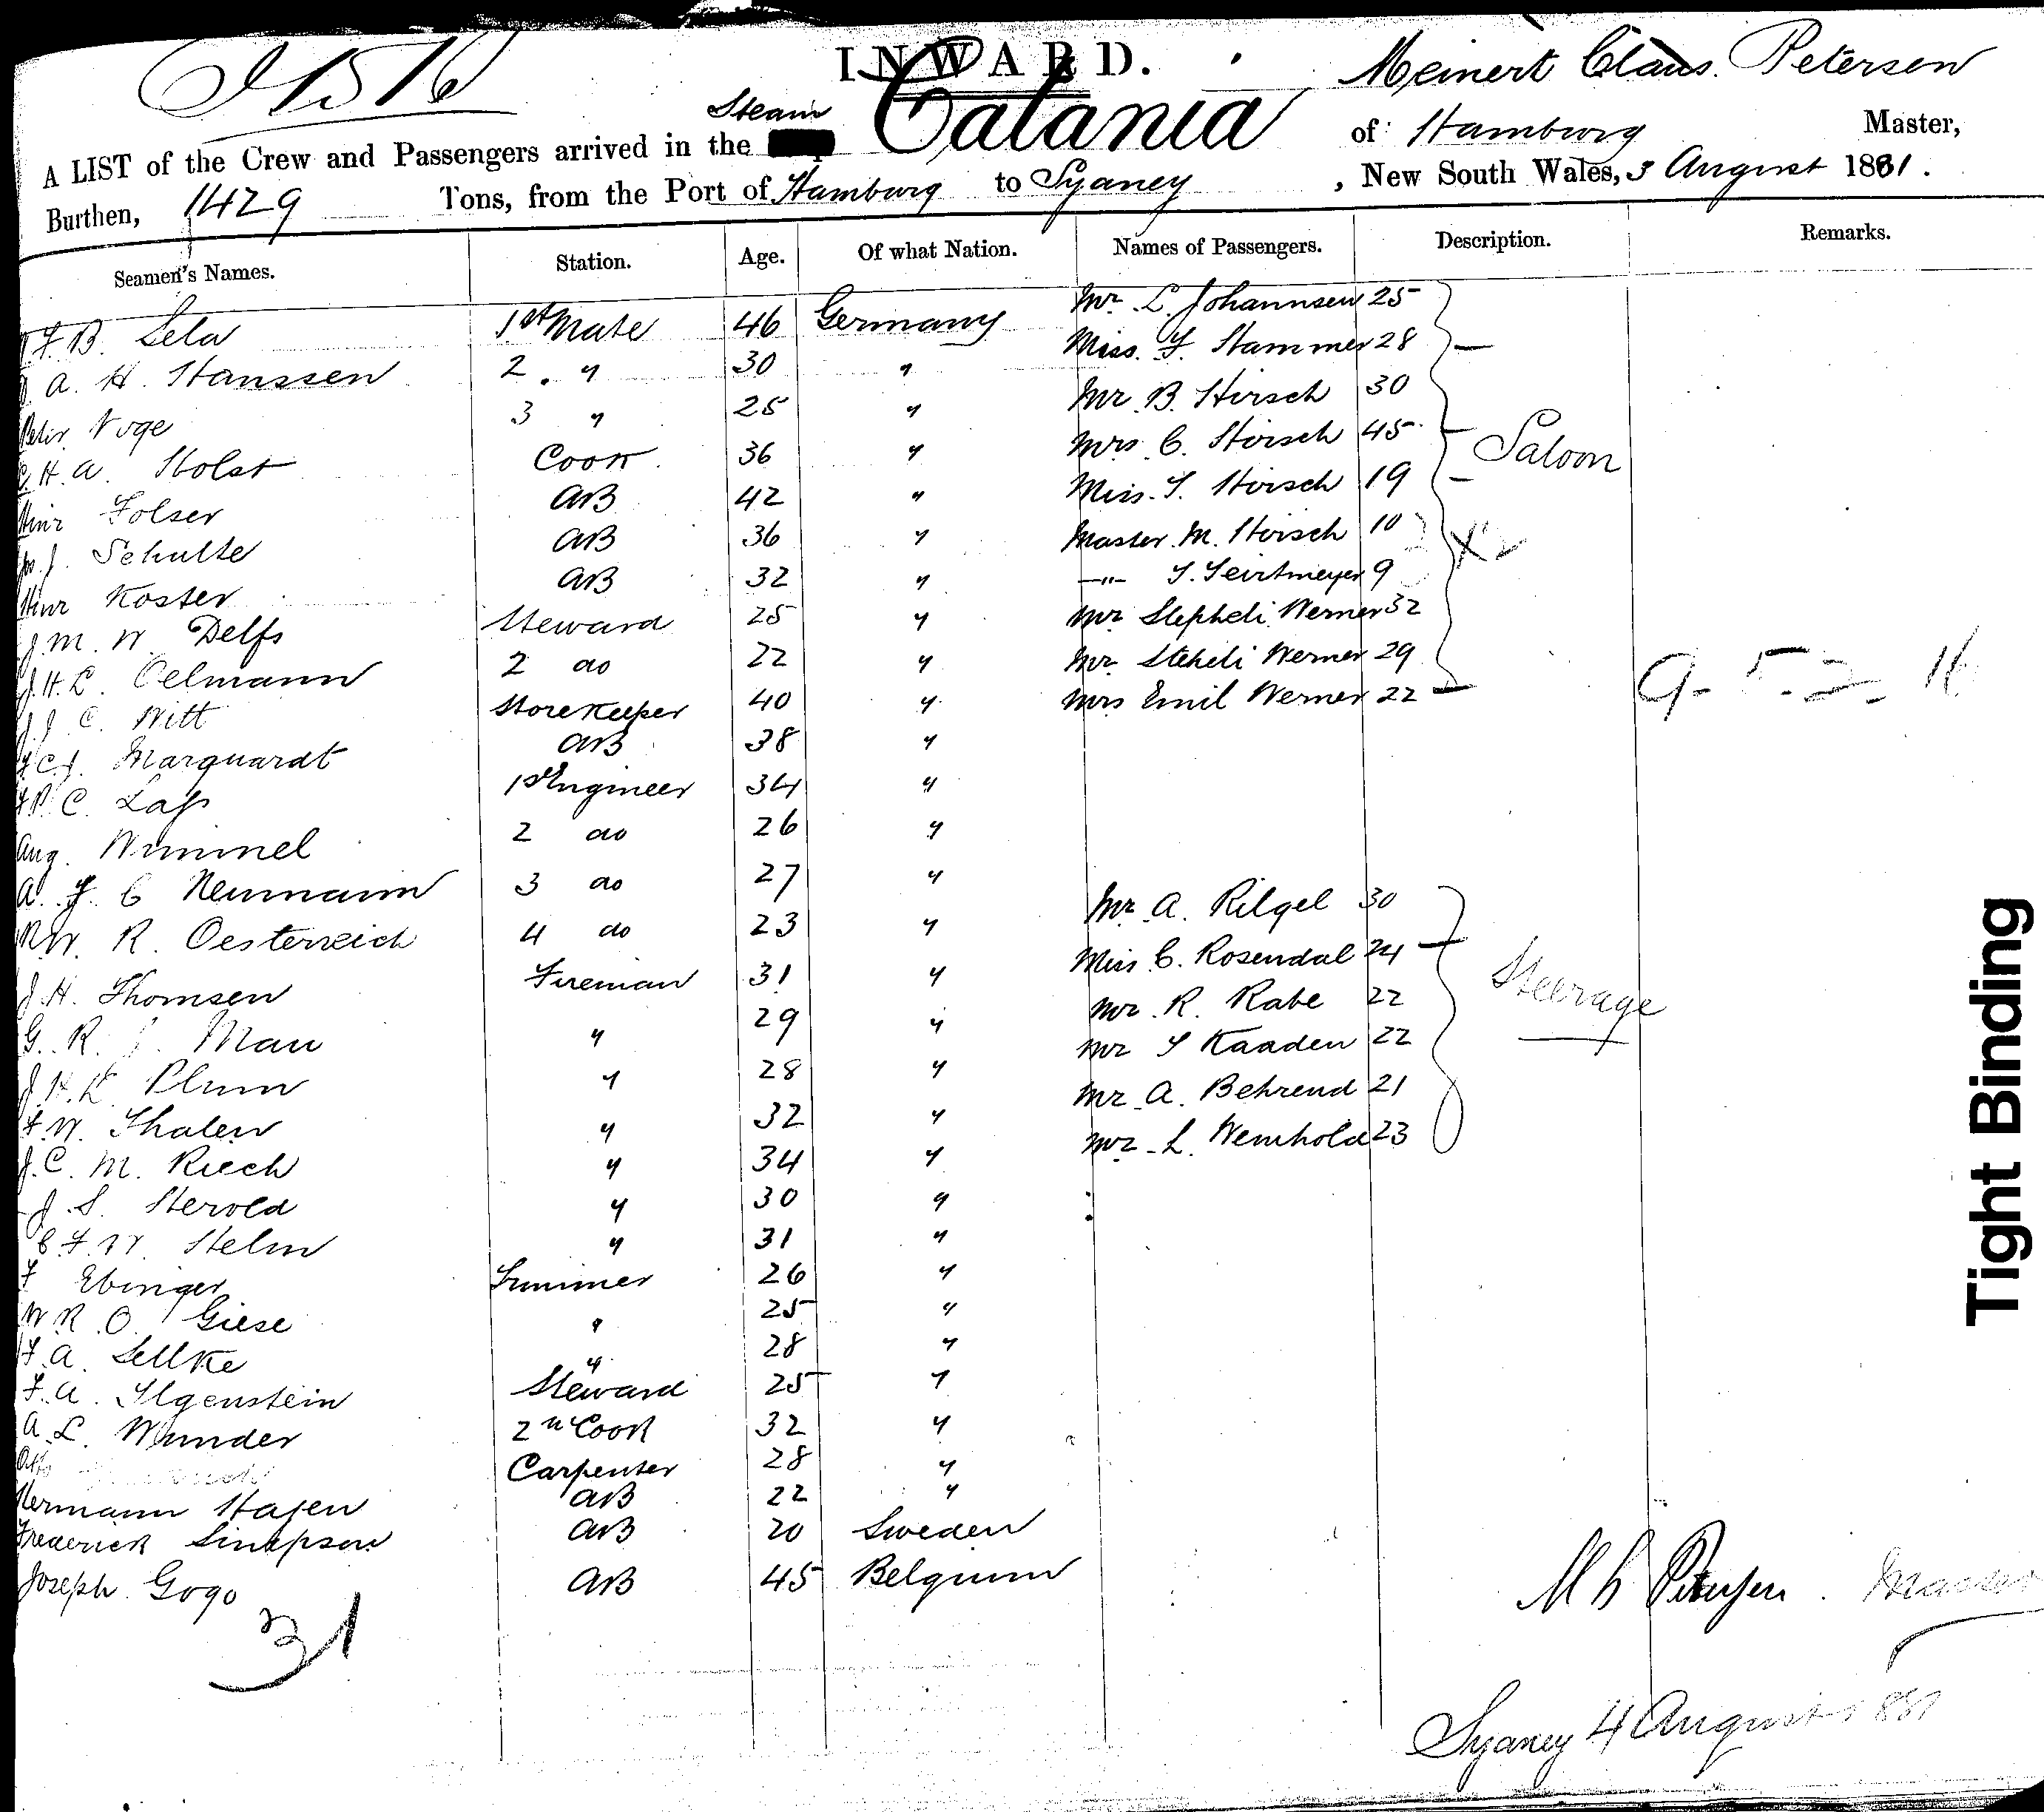 INWARD.
Meinert Claus Petersen
Steam
A LIST of the Crew and Passengers arrived in the Catania of Hamburg Master,
Burthen, 1429 Tons, from the Port of Hamburg to Sydney, New South Wales, 3 August 1881.
Seamen's Names. Station. Age. Of what Nation. Names of Passengers. Description. Remarks.
F. B. Sela 1st Mate 46 Germany Mr. L. Johannsen 25
A. H. Hanssen 2 " 30 " Miss. F. Hammer 28
Peter Voge 3 " 25 " Mr B. Hirsch 30
C. H. A. Holst Cook 36 " Mrs C. Hirsch 45 Saloon
Hinr Folser AB 42 " Miss. S. Hirsch 19
J. Schulte AB 36 " Master M. Hirsch 10
Hinr Koster AB 32 " —"— S. Seirtmeyer 9
J. M. W. Delfs Steward 25 " Mr Stepheli Werner 32
J. H. L. Oelmann 2 do 22 " Mr Steheli Werner 29
J. J. C. Witt Storekeeper 40 " Mrs Emil Werner 22
9-5.2.16
Marquardt AB 38 "
C. Lass 1st Engineer 34 "
Aug. Wimmel 2 do 26 "
A. F. C Neumann 3 do 27 " Mr A. Rilgel 30
R. W. R. Oesterreich 4 do 23 " Miss C. Rosendal 24 Steerage
J. H. Thomsen Fireman 31 " Mr R. Rabe 22
G. R. J. Mau " 29 " Mr S Kaaden 22
J. H. L. Plum " 28 " Mr A. Behrend 21
F. W. Thalen " 32 " Mr L. Wernhold 23
J. C. M. Riech " 34 "
J. S. Herold " 30 "
C. F. W. Helm " 31 "
F Ebinger Trimmer 26 "
W R. O. Giese " 25 "
F. A. Sellke " 28 "
F. A. Ilgenstein Steward 25 "
A. L. Wunder 2n Cook 32 "
Otto Carpenter 28 "
Hermann Hagen AB 22 "
Frederick Simpson AB 20 Sweden
Joseph Gogo AB 45 Belgium
31
M C Petersen. Master
Sydney 4 August 1881
Tight Binding